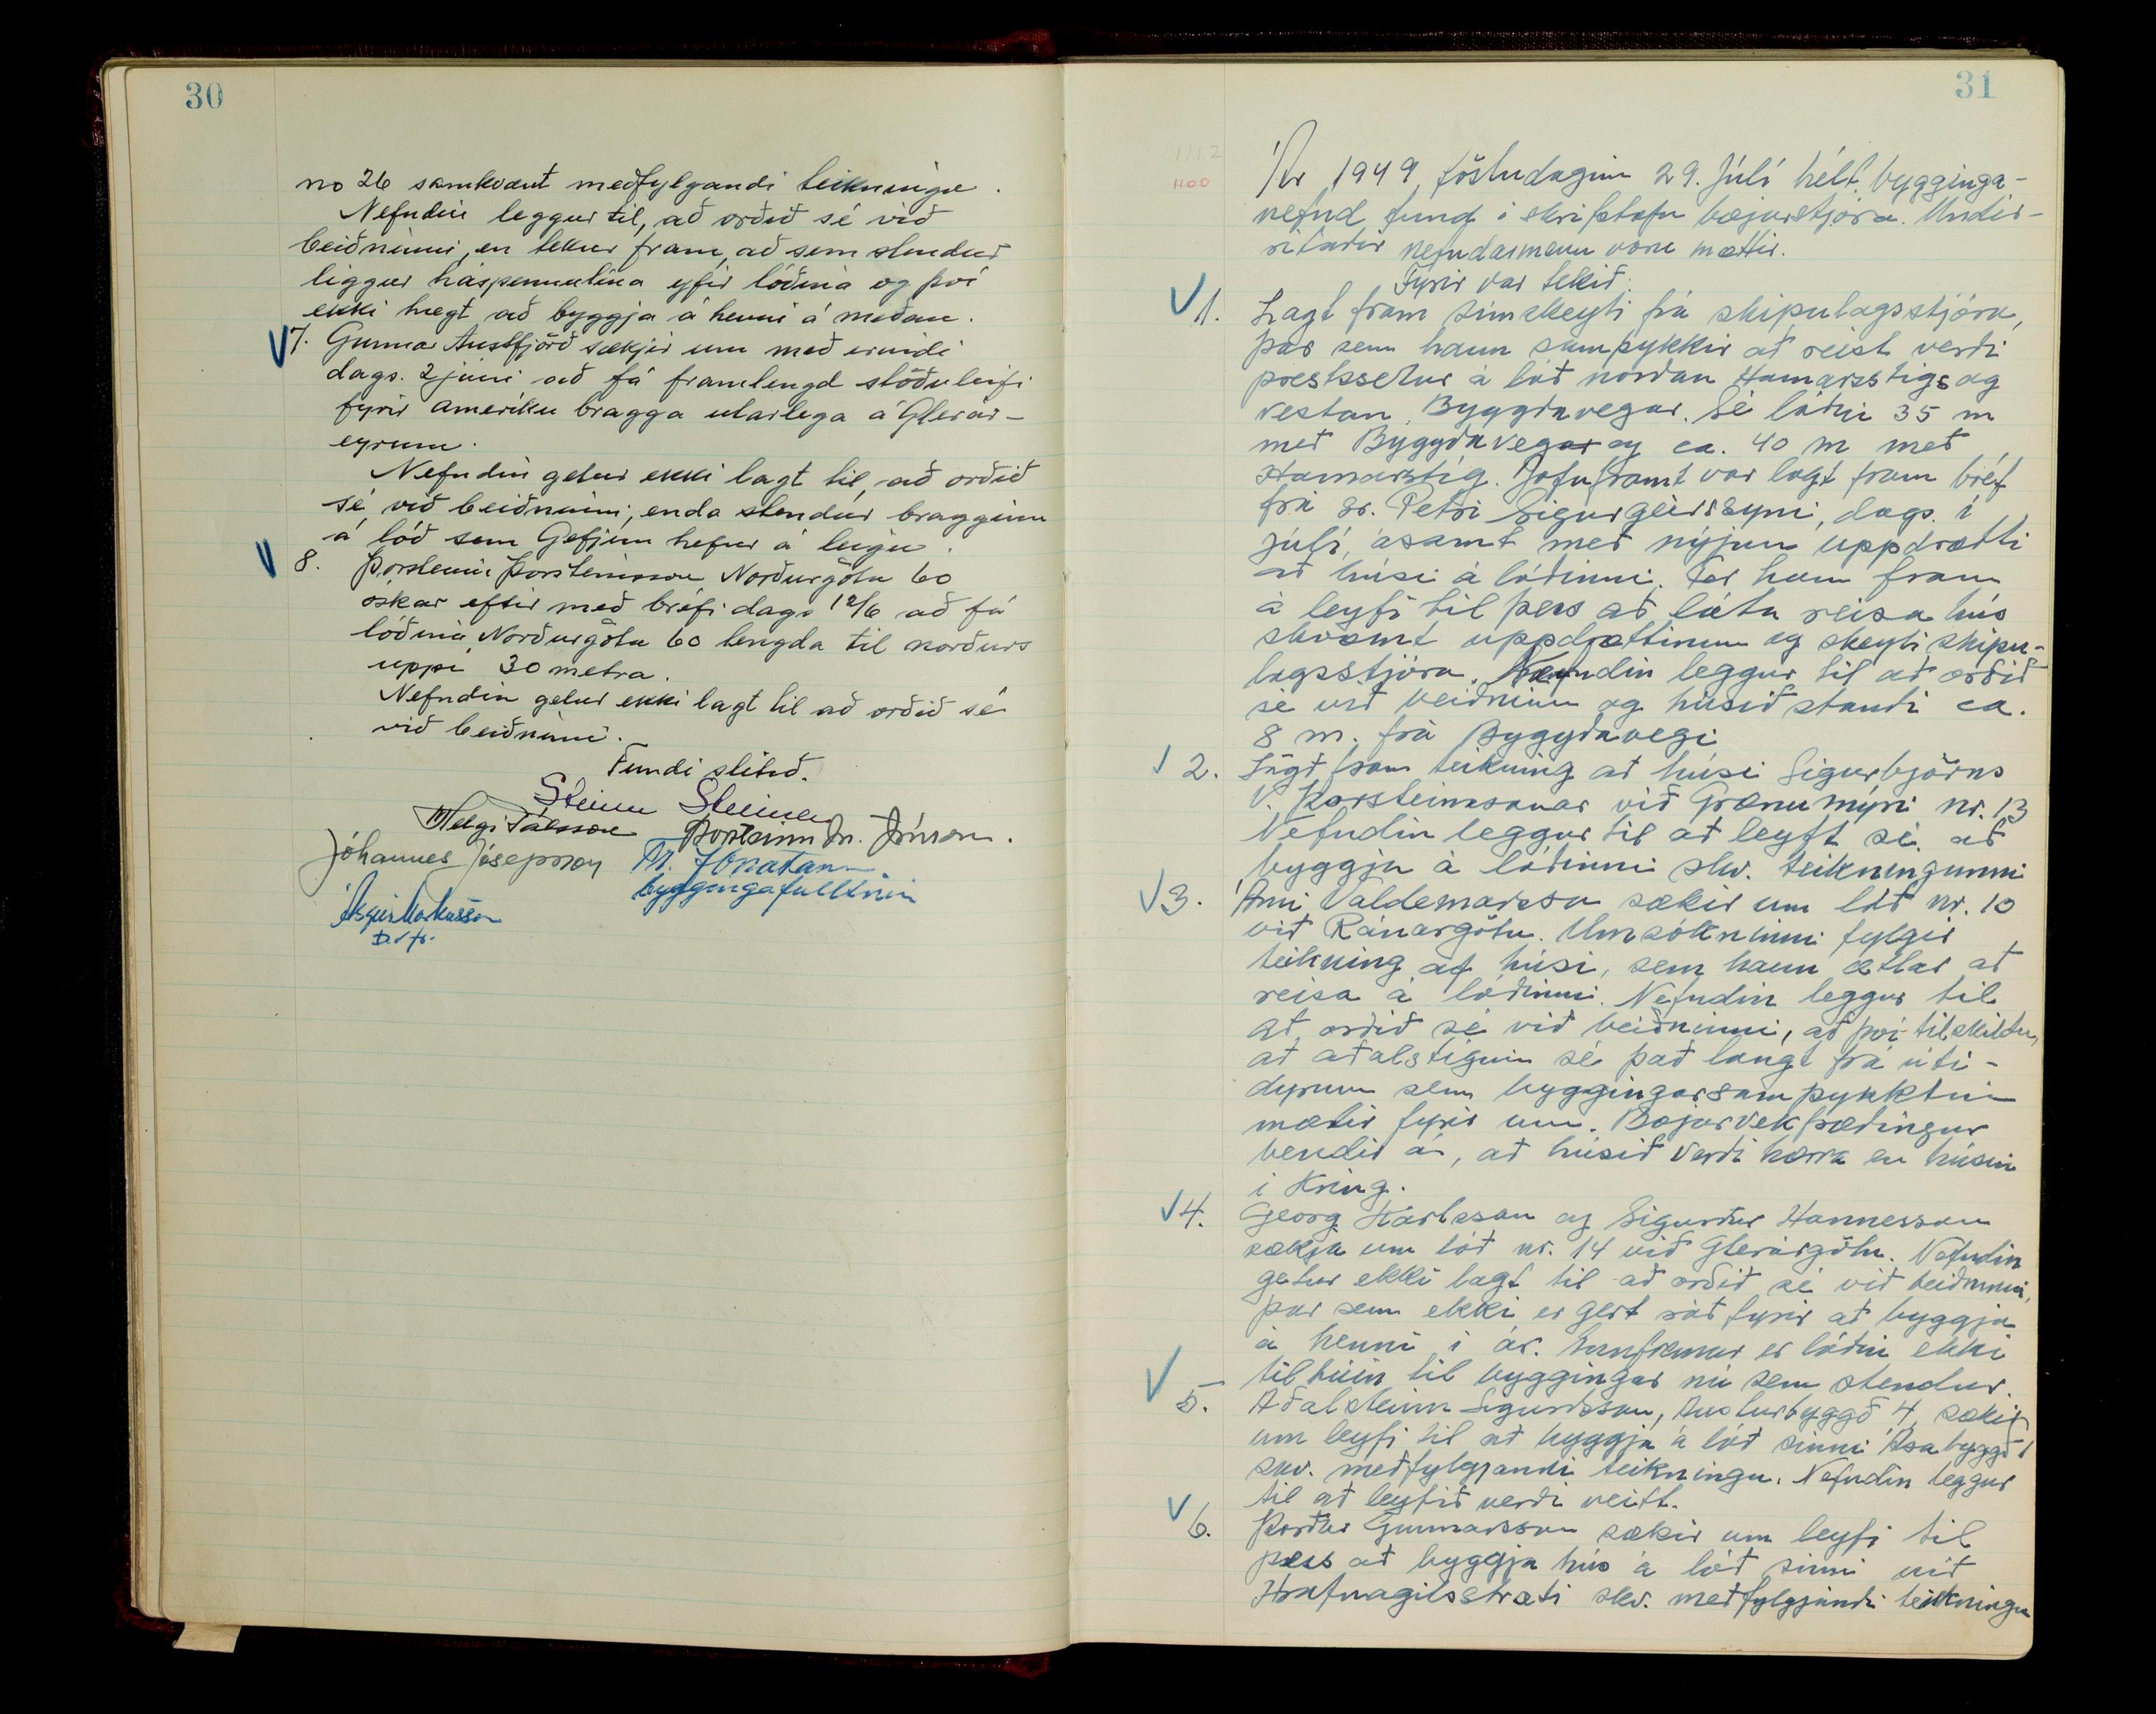 30
no 26 samkvæmt meðfylgandi teikningu.
Nefndin leggur til, að orðið sé við
beiðninni, en tekur fram, að sem stendur
liggur háspennulína yfir lóðina og því
ekki hægt að byggja á henni á meðan.
7. Gunnar Austfjörð sækjir um með erindi
dags. 2 júní að fá framlengd stöðuleifi
fyrir ameríku bragga utarlega á Glerár-
eyrum.
Nefndin getur ekki lagt til, að orðið
sé við beiðninni, enda stendur bragginn
á lóð sem Gefjun hefur á leigu.
8. Þorsteinn Þorsteinsson Norðurgötu 60
óskar eftir með bréfi dags 12/6 að fá
lóðina Norðurgötu 60 lengda til norðurs
uppí 30 metra.
Nefndin getur ekki lagt til að orðið sé
við beiðninni.
Fundi slitið.
Steinn Steinsen
Helgi Pálsson Þorsteinn M. Jónsson.
Jóhannes Jósepsson M. Jónatans
byggingafulltrúi
Ásgeir Markússon
31
1112
1100
Ár 1949, föstudaginn 29. Júlí hélt bygginga-
nefnd fund í skrifstofu bæjarstjóra. Undir-
ritaðir nefndarmenn voru mættir.
Fyrir var tekið:
1. Lagt fram símskeyti frá skipulagsstjóra,
þar sem hann samþykkir að reist verði
prestssetur á lóð norðan Hamarsstigs og
vestan Byggðavegar. Sé lóðin 35 m
með Byggðavegar og ca. 40 m með
Hamarstíg. Jafnframt var lagt fram bréf
frá sr. Petri Sigurgeirssyni, dags. í
júlí, ásamt með nýjum uppdrætti
að húsi á lóðinni. Fer hann fram
á leyfi til þess að láta reisa hús
skvæmt uppdrættinum og skeyti skipu-
lagsstjóra. Nefndin leggur til að orðið
sé við beiðninni og húsið standi ca.
8 m. frá Byggðavegi
2. Lögð fram teikning að húsi Sigurbjörns
V. Þorsteinssonar við Grænumýri nr. 13
Nefndin leggur til að leyft sé að
byggja á lóðinni skv. teikningunni
3. Árni Valdemarsson sækir um lóð nr. 10
við Ránargötu. Umsókninni fylgir
teikning af húsi, sem hann ætlar að
reisa á lóðinni. Nefndin leggur til
að orðið sé við beiðninni, að því tilskildu,
að aðalstiginn sé það langt frá úti-
dyrum sem byggingarsamþykktin
mælir fyrir um. Bæjarverkfræðingur
bendir á, að húsið verði hærra en húsin
í kring.
4. Georg Karlsson og Sigurður Hannesson
sækja um lóð nr. 14 við Glerárgötu. Nefndin
getur ekki lagt til að orðið sé við beiðninni,
þar sem ekki er gert ráð fyrir að byggja
á henni í ár. Ennfremur er lóðin ekki
tilbúin til byggingar nú sem stendur.
5. Aðalsteinn Sigurðsson, Austurbyggð 4, sækir
um leyfi til að byggja á lóð sinni Ásabyggð 1
skv. meðfylgjandi teikningu. Nefndin leggur
til að leyfið verði veitt.
6. Þórður Gunnarsson sækir um leyfi til
þess að byggja hús á lóð sinni við
Hrafnagilsstræti skv. meðfylgjandi teikningu